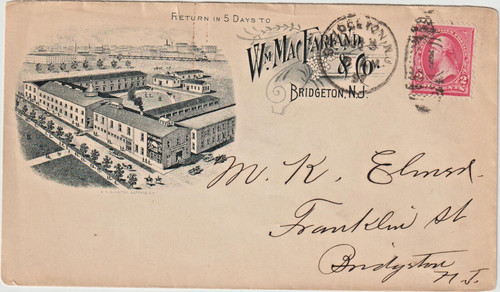 RETURN IN 5 DAYS TO
WM MACFARLAND
& CO.
BRIDGETON, N.J.
BRIDGETON, N.J.
2
M. K. Elmer
Franklin St
Bridgeton
N. J.